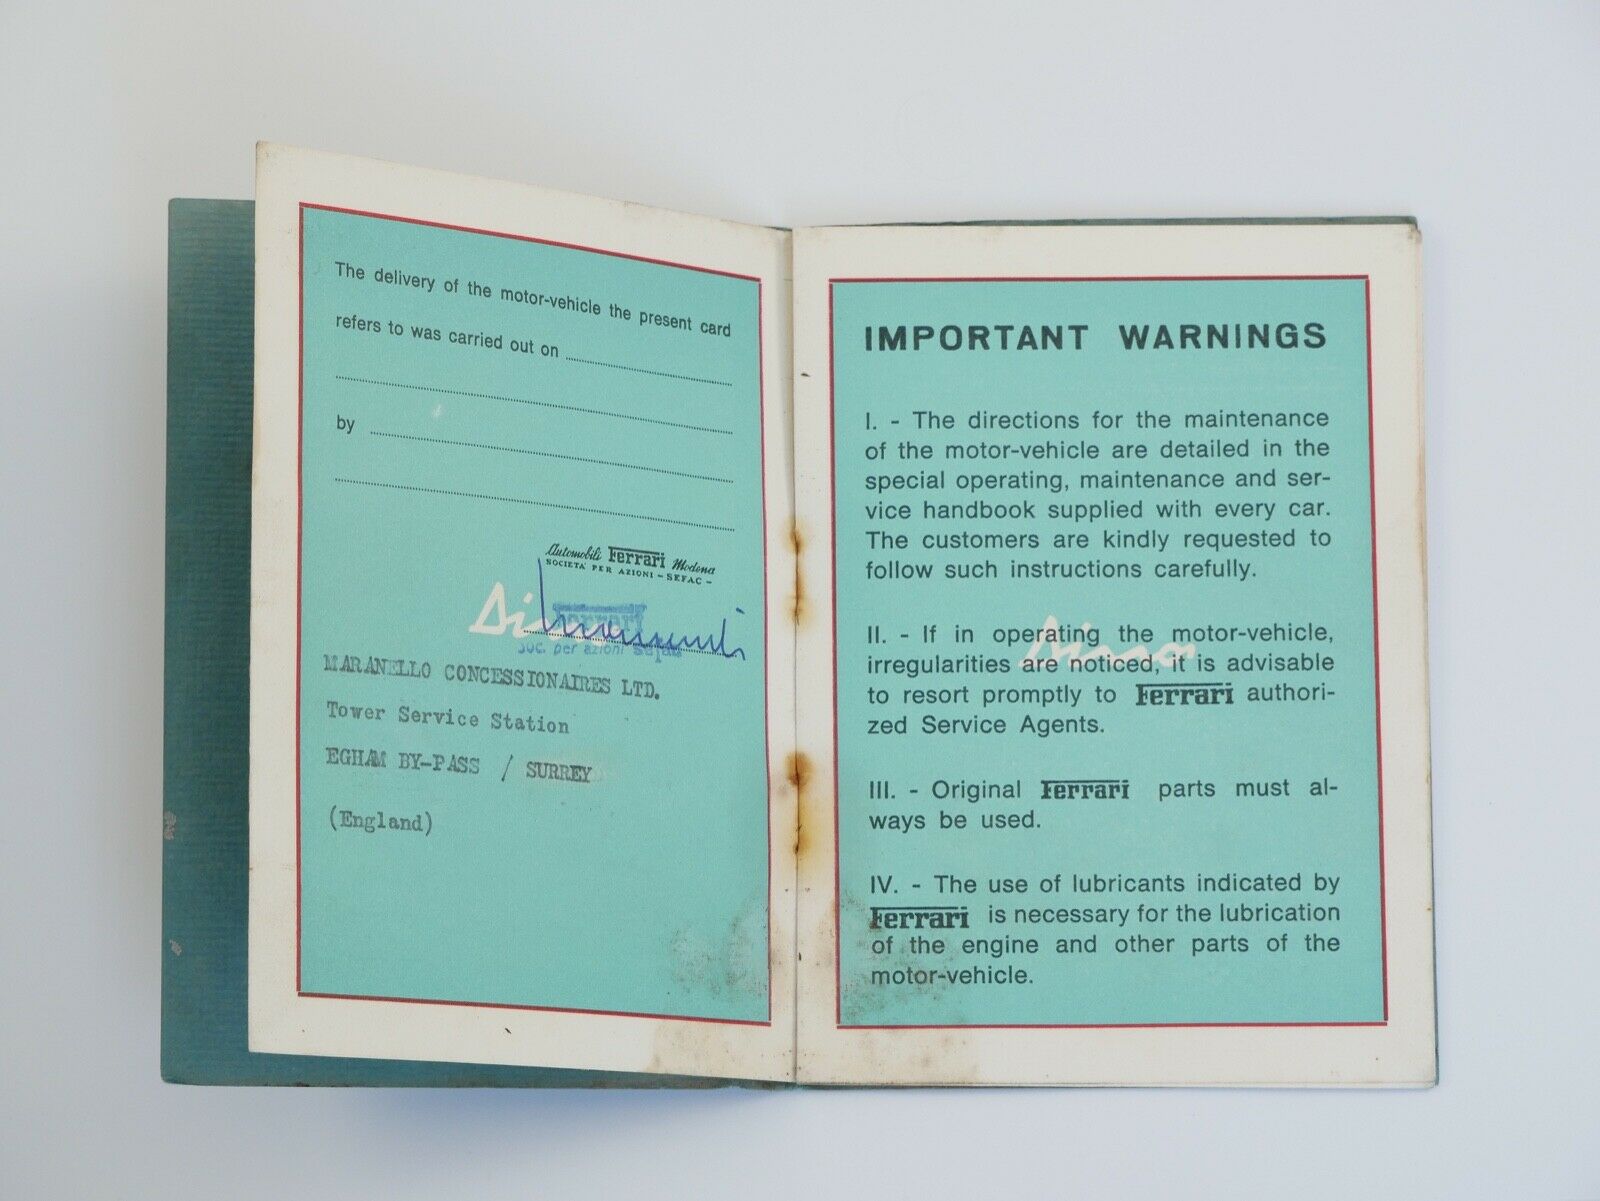 The delivery of the motor-vehicle the present card
refers to was carried out on
by
Automobili Ferrari Modena
SOCIETA' PER AZIONI - SEFAC -
Dino
Ferrari
Soc. per azioni Sefac
MARANELLO CONCESSIONAIRES LTD.
Tower Service Station
EGHAM BY-PASS / SURREY
(England)
IMPORTANT WARNINGS
I. - The directions for the maintenance
of the motor-vehicle are detailed in the
special operating, maintenance and ser-
vice handbook supplied with every car.
The customers are kindly requested to
follow such instructions carefully.
Dino
II. - If in operating the motor-vehicle,
irregularities are noticed, it is advisable
to resort promptly to Ferrari authori-
zed Service Agents.
III. - Original Ferrari parts must al-
ways be used.
IV. - The use of lubricants indicated by
Ferrari is necessary for the lubrication
of the engine and other parts of the
motor-vehicle.